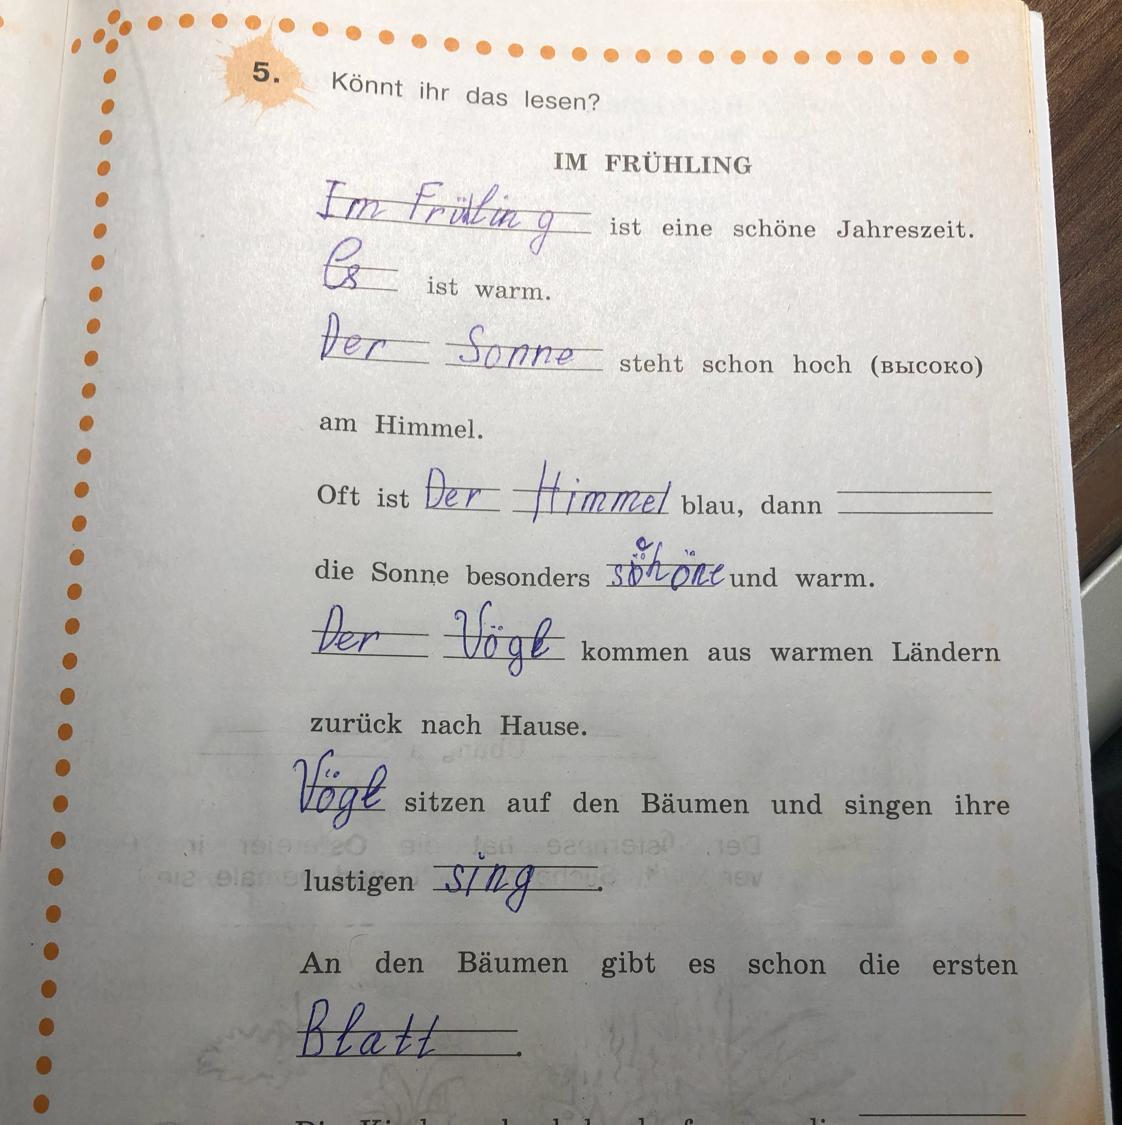 5. Könnt ihr das lesen?
IM FRÜHLING
Im Früling ist eine schöne Jahreszeit.
Es ist warm.
Der Sonne steht schon hoch (высоко)
am Himmel.
Oft ist Der Himmel blau, dann
die Sonne besonders schöne und warm.
Der Vögl kommen aus warmen Ländern
zurück nach Hause.
Vögl sitzen auf den Bäumen und singen ihre
lustigen sing.
An den Bäumen gibt es schon die ersten
Blatt.